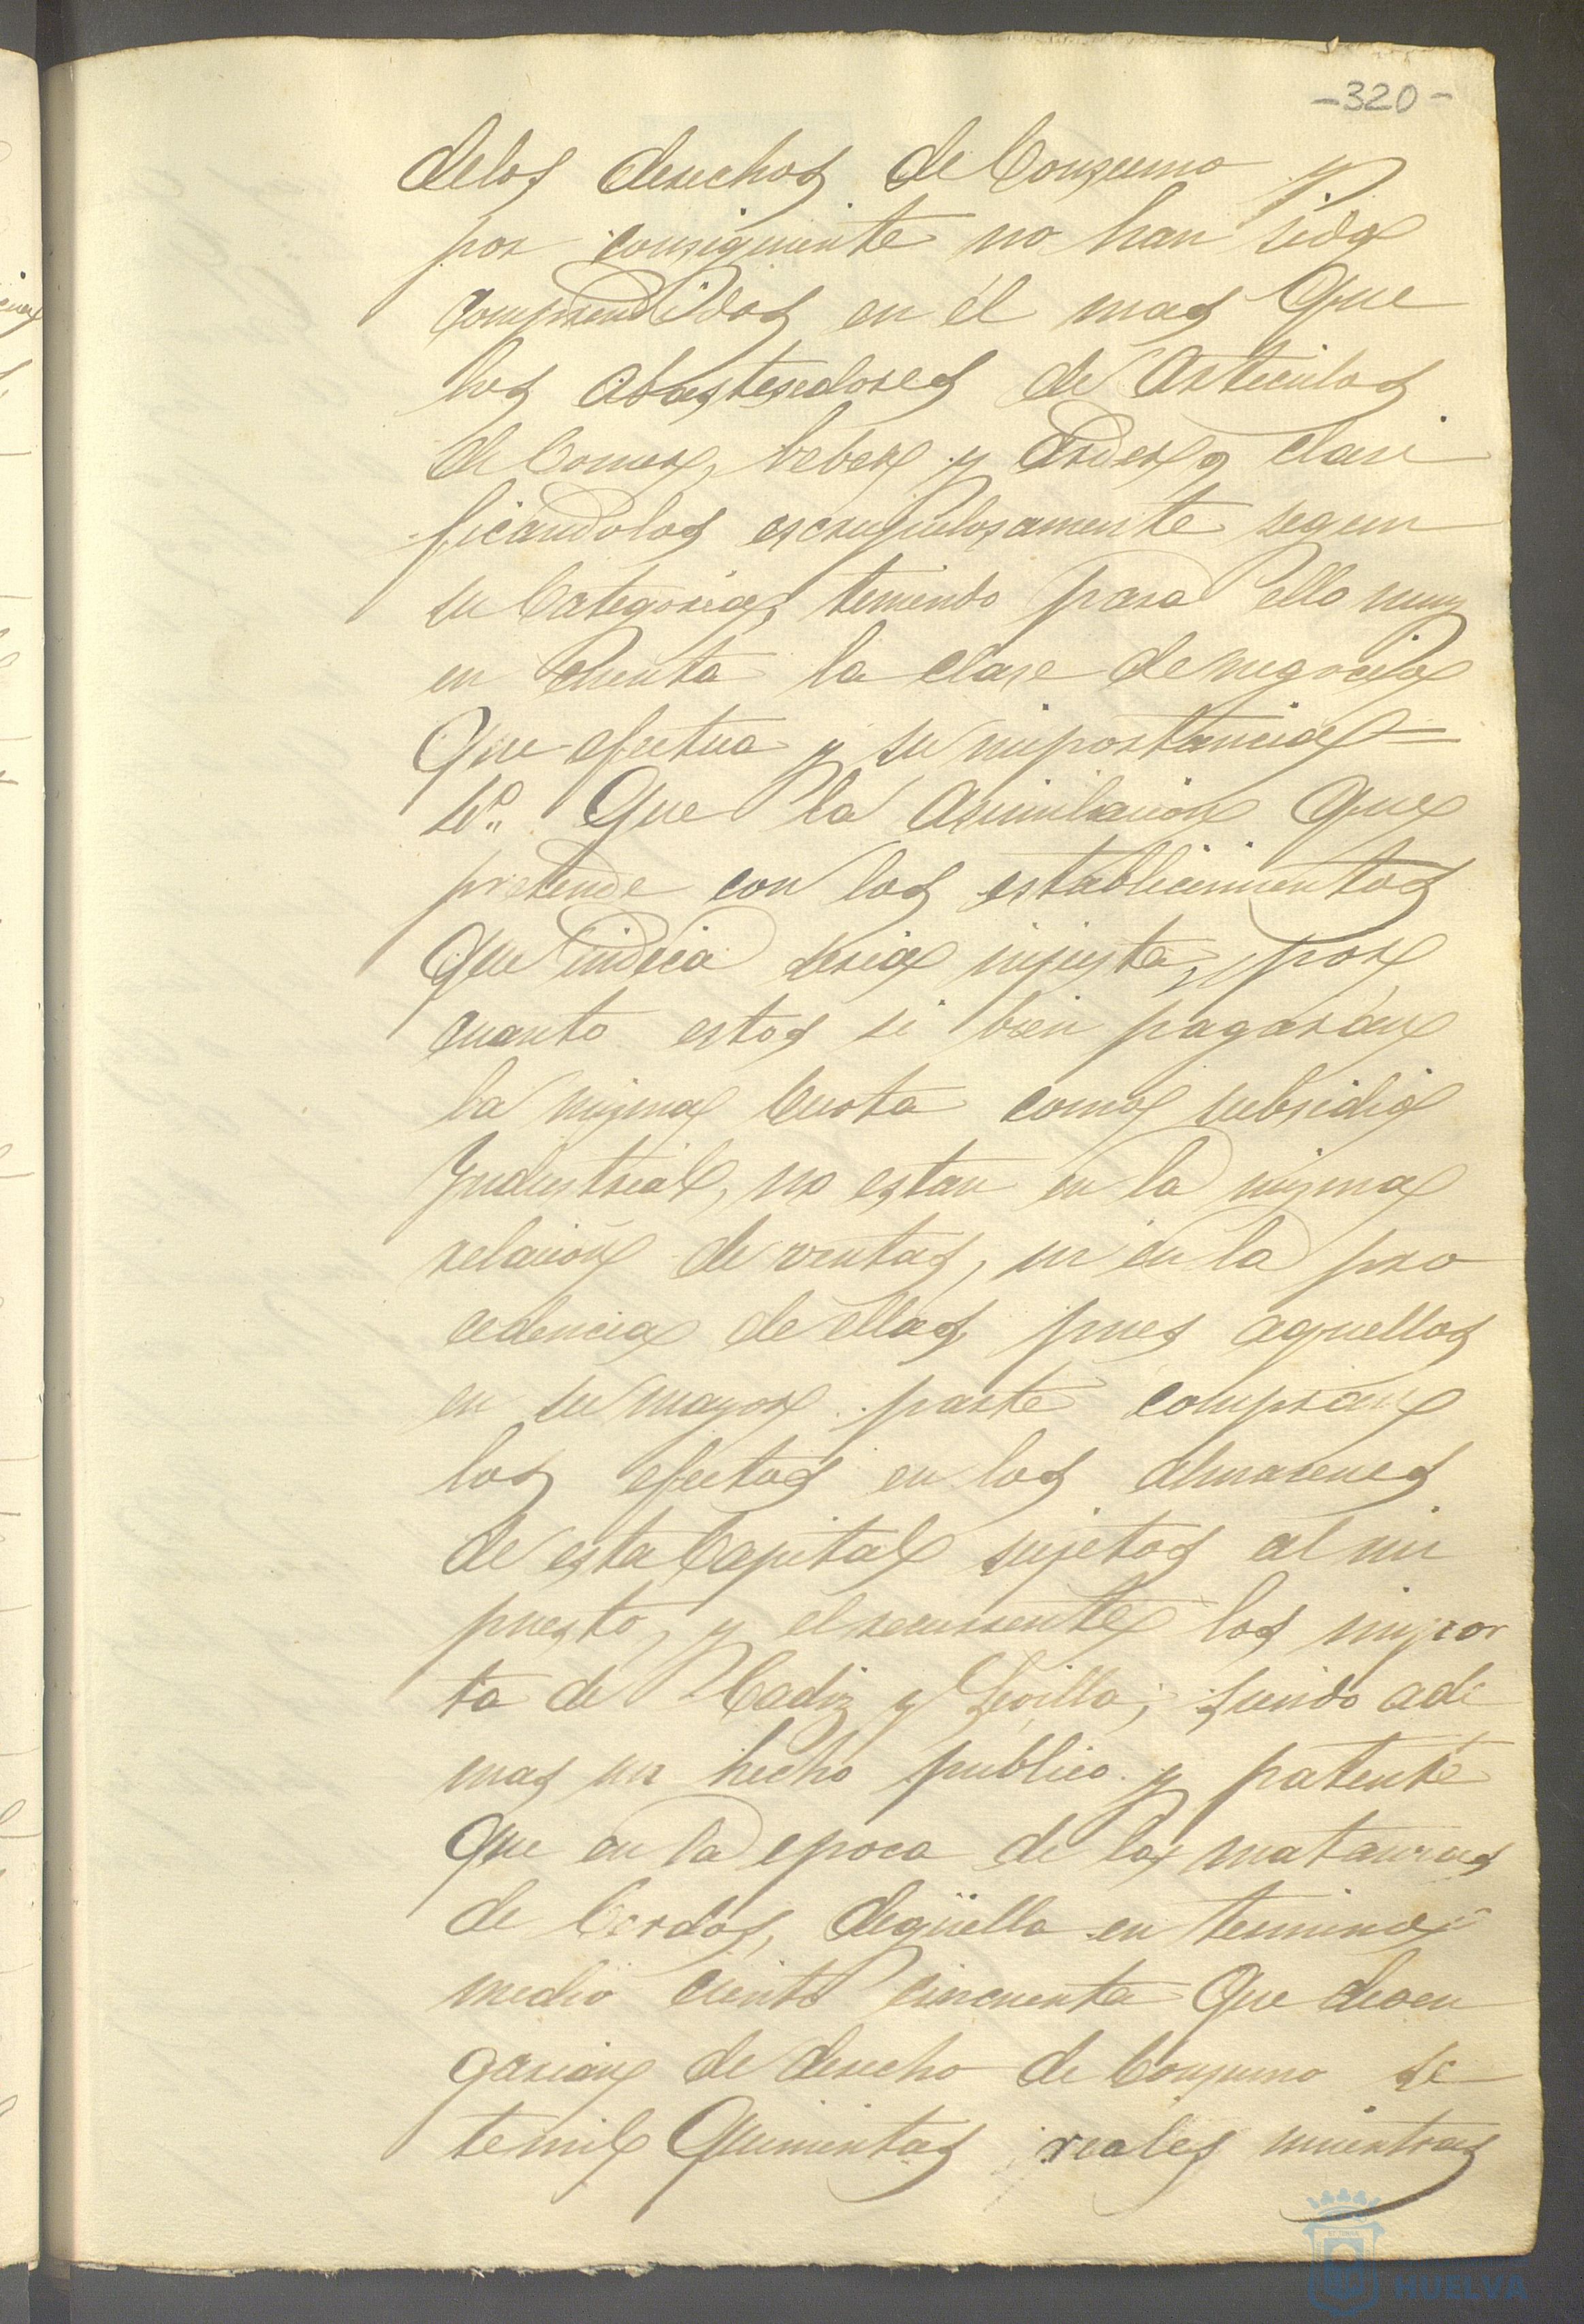 -320-
delos derechos de Consumo y
por consiguiente no han sido
comprendidos en él mas que
los abastesedores de Articulos
de Comer, beber y Arder, clasi
ficandolos escrupulosamente segun
su Categoria, teniendo para ello muy
en Cuenta la clase de negocio
Que efectua y su importancia=
Que la Asimilacion que
pretende con los establecimientos
Que indica seria injusta, por
cuanto estos si bien pagarán
la misma Cuota como subsidio
Yndustrial, no estan en la misma
relacion de ventas, ni en la pro
cedencia de ellas, pues aquellos
en su mayor parte compran
los efectos en los almacenes
de esta Capital sujetos al im
puesto, y el recurrente los impor
ta de Cadiz y Sevilla; siendo ade
mas un hecho público y patente
Que en la epoca de las matanzas
de Cerdos, degüella en termino
medio ciento cincuenta Que deven
garian de derecho de Consumo se
temil Quinientos reales mientras
HUELVA